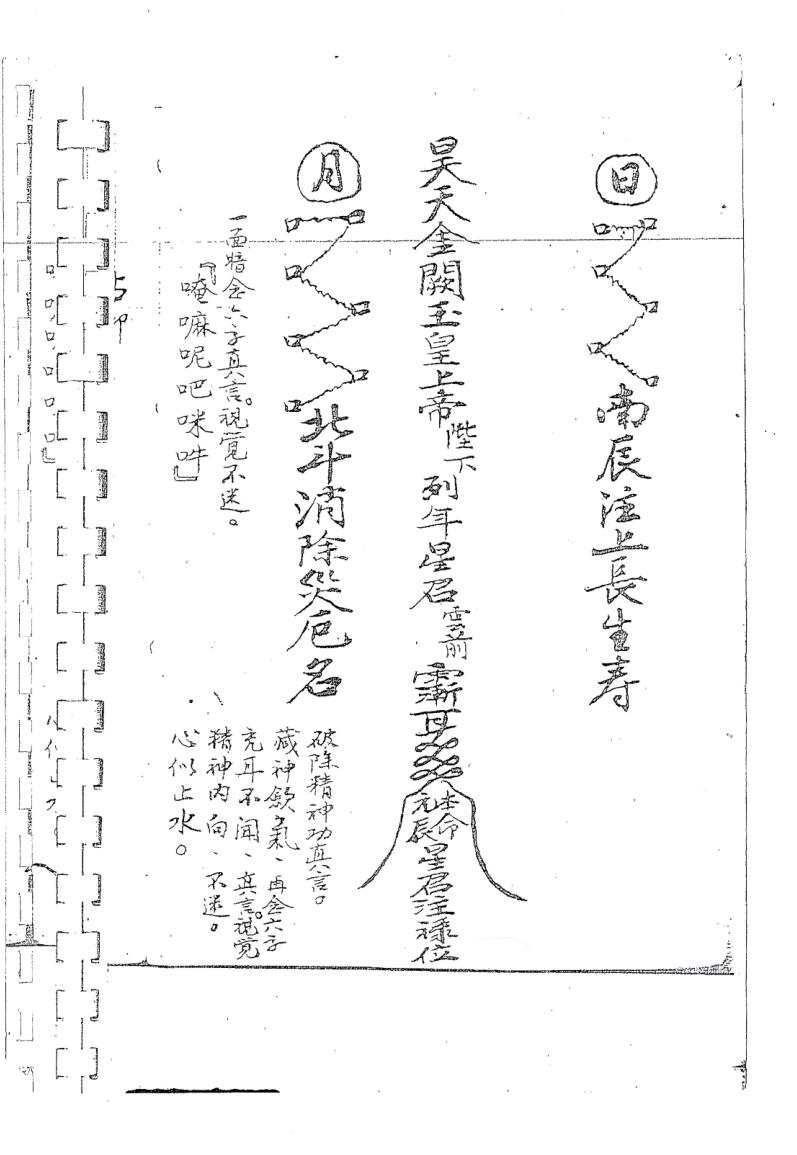 日
南辰注上長生寿
昊天金闕玉皇上帝陛下列年星君
本命元辰星君注禄位
月
北斗消除災厄名
破除精神功真言。
藏神歛氣、再念六字
充耳不闻、真言。視覚
精神内向、不迷。
心似止水。
一面暗念六字真言。視覚不迷。
『唵嘛呢吧咪吽』